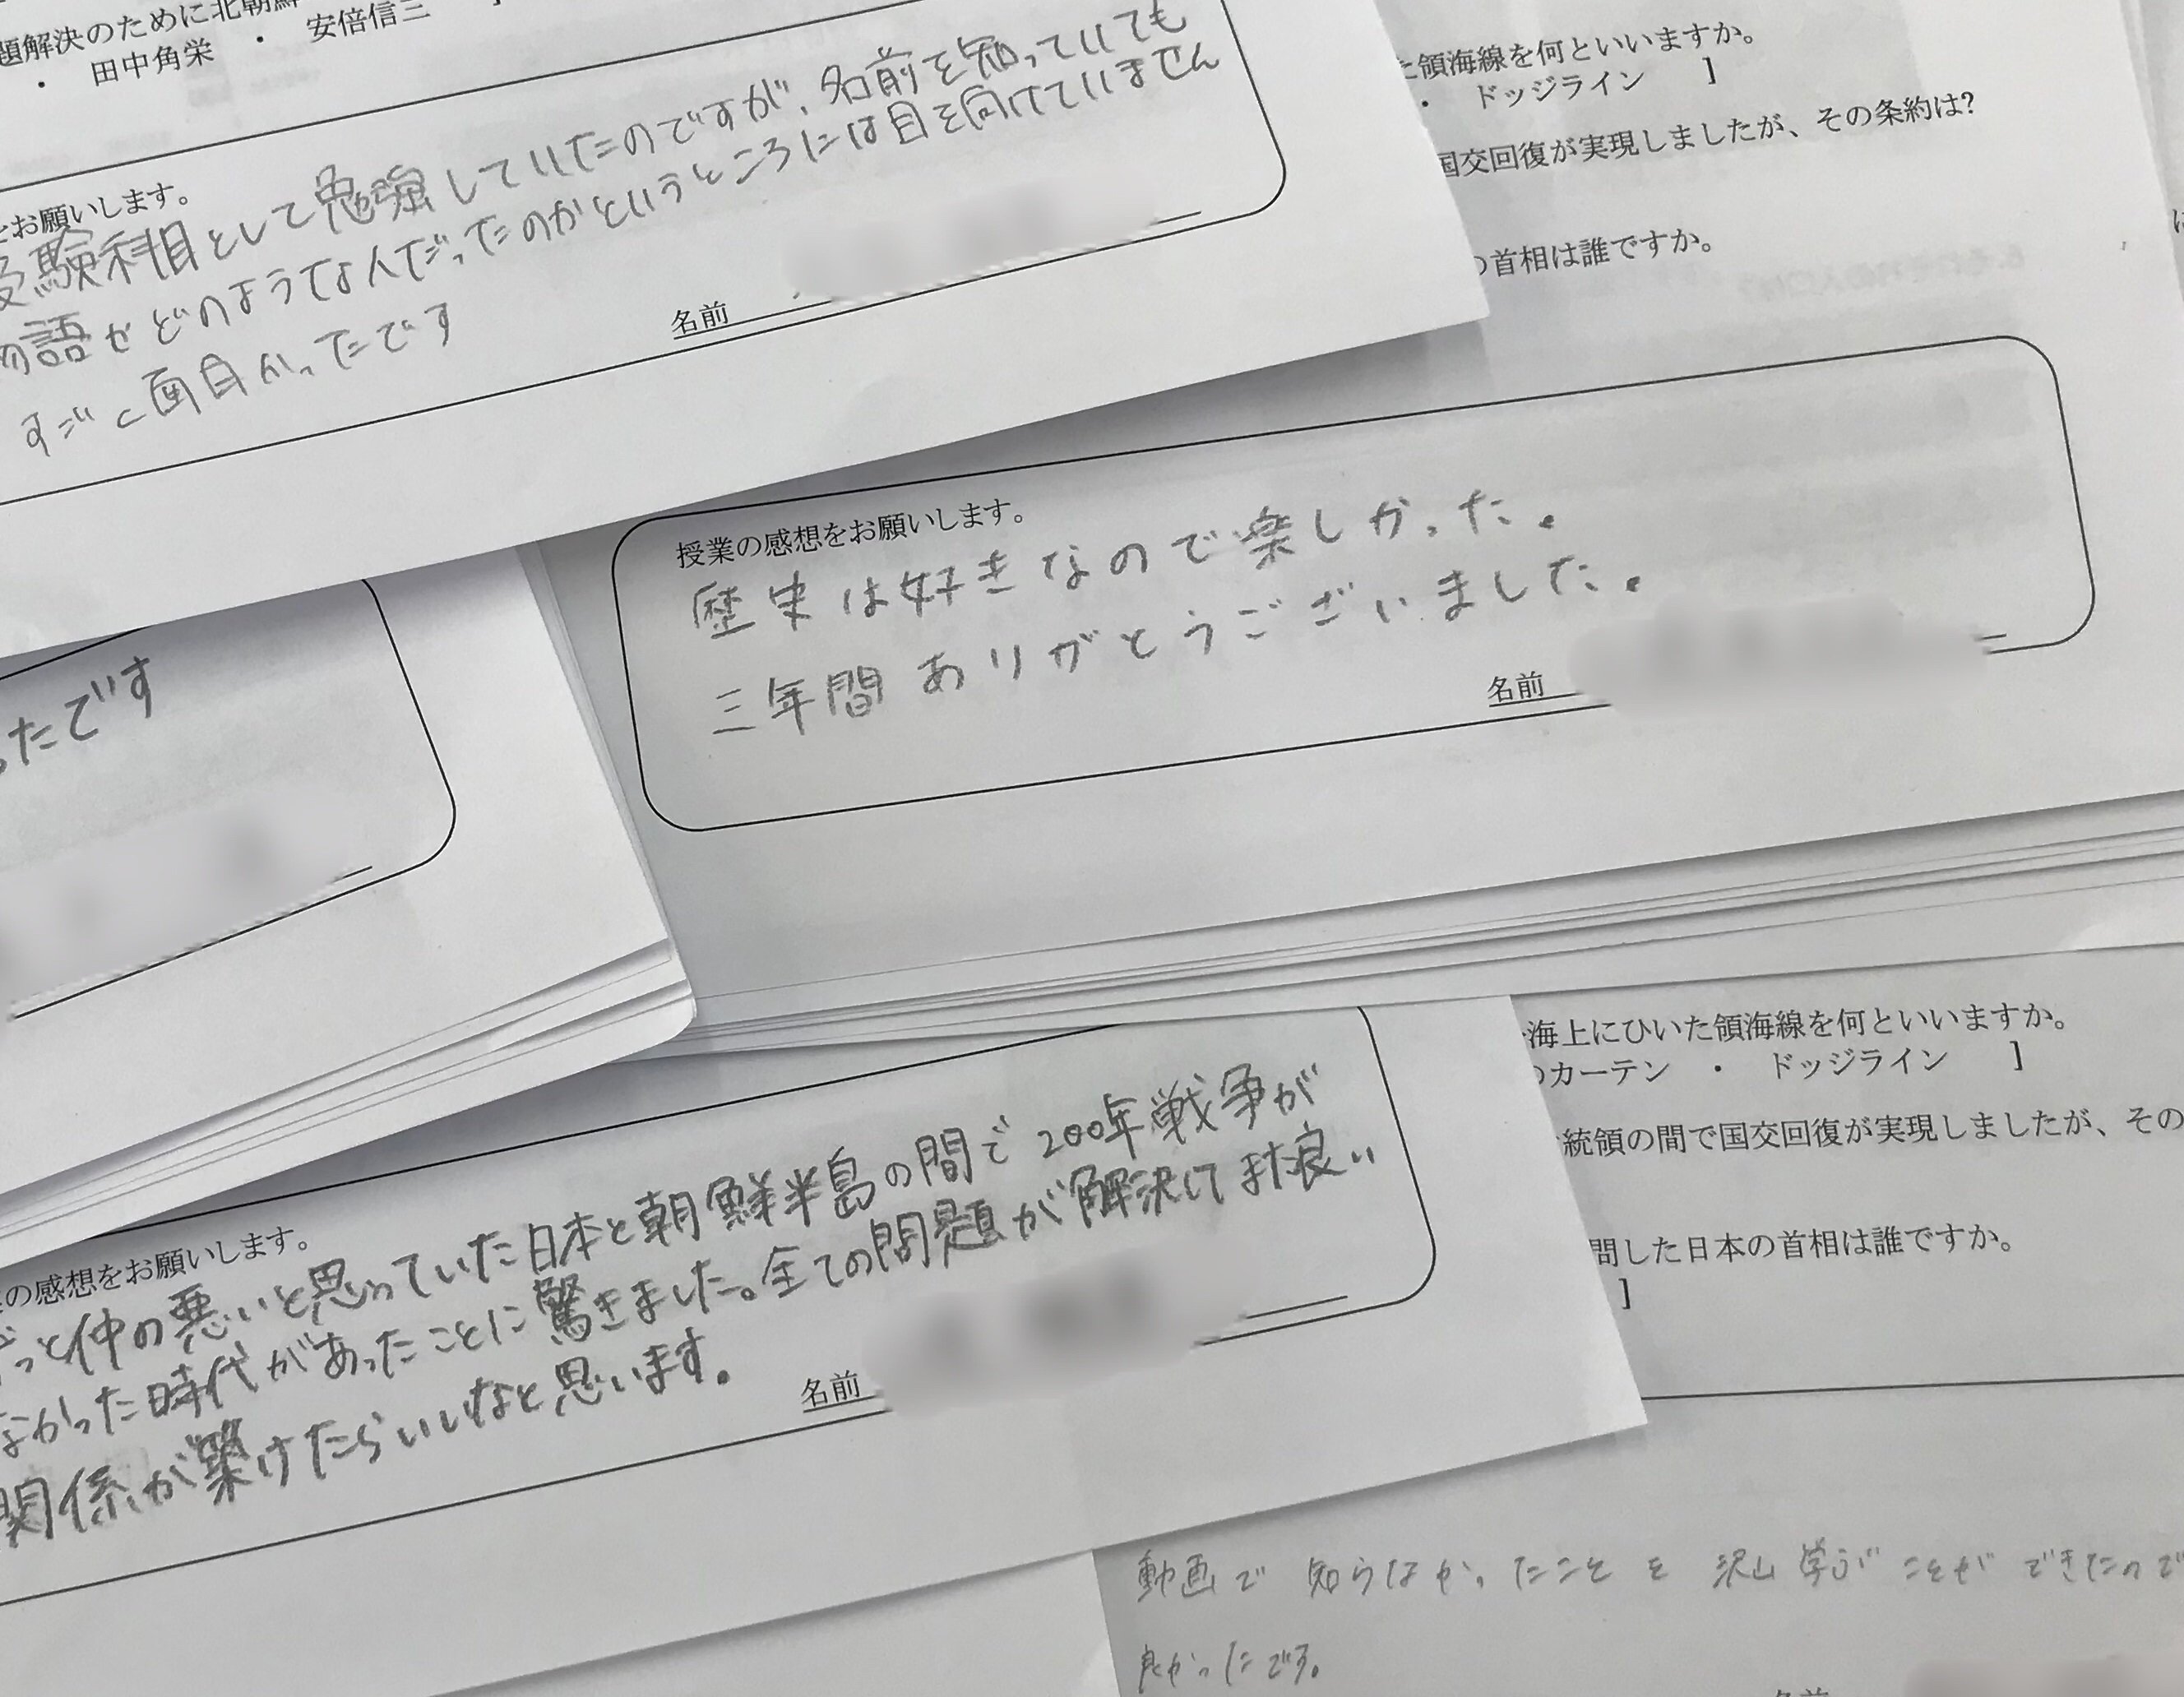 題解決のために北朝鮮
・ 田中角栄 ・ 安倍信三 ]
お願いします。
受験科目として勉強していたのですが、名前を知っていても
物語がどのような人だったのかというところには目を向けていません
すごく面白かったです
名前
た領海線を何といいますか。
・ ドッジライン ]
国交回復が実現しましたが、その条約は?
の首相は誰ですか。
授業の感想をお願いします。
歴史は好きなので楽しかった。
三年間ありがとうございました。
名前
ったです
海上にひいた領海線を何といいますか。
のカーテン ・ ドッジライン ]
統領の間で国交回復が実現しましたが、その
問した日本の首相は誰ですか。
]
の感想をお願いします。
ずっと仲の悪いと思っていた日本と朝鮮半島の間で200年戦争が
なかった時代があったことに驚きました。全ての問題が解決してまた良い
関係が築けたらいいなと思います。
名前
動画で知らなかったことを沢山学ぶことができたので
良かったです。
名前